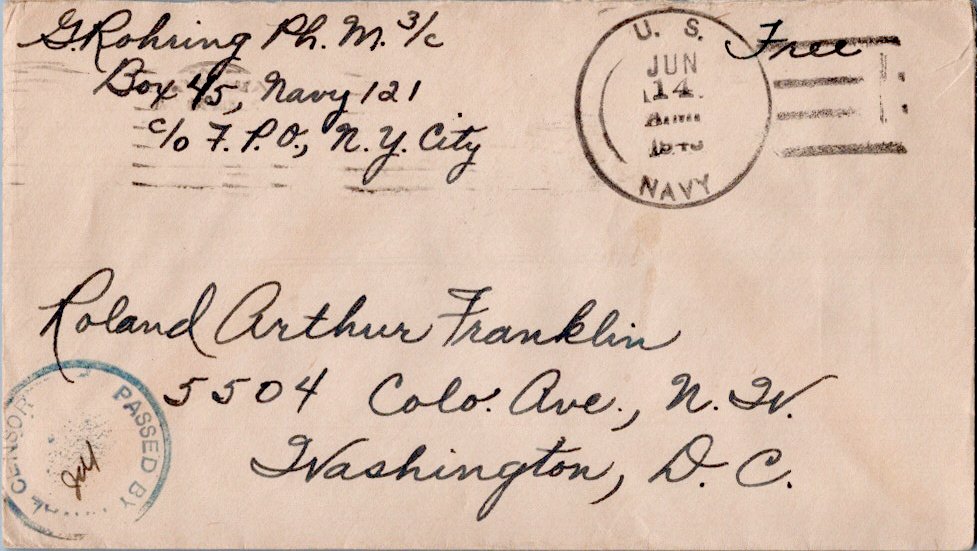 G. Rohring Ph. M. 3/c
Box 45, Navy 121
c/o F. P. O., N. Y. City
U. S.
JUN
14
NAVY
Free
Roland Arthur Franklin
5504 Colo. Ave., N. W.
Washington, D. C.
PASSED BY
CENSOR